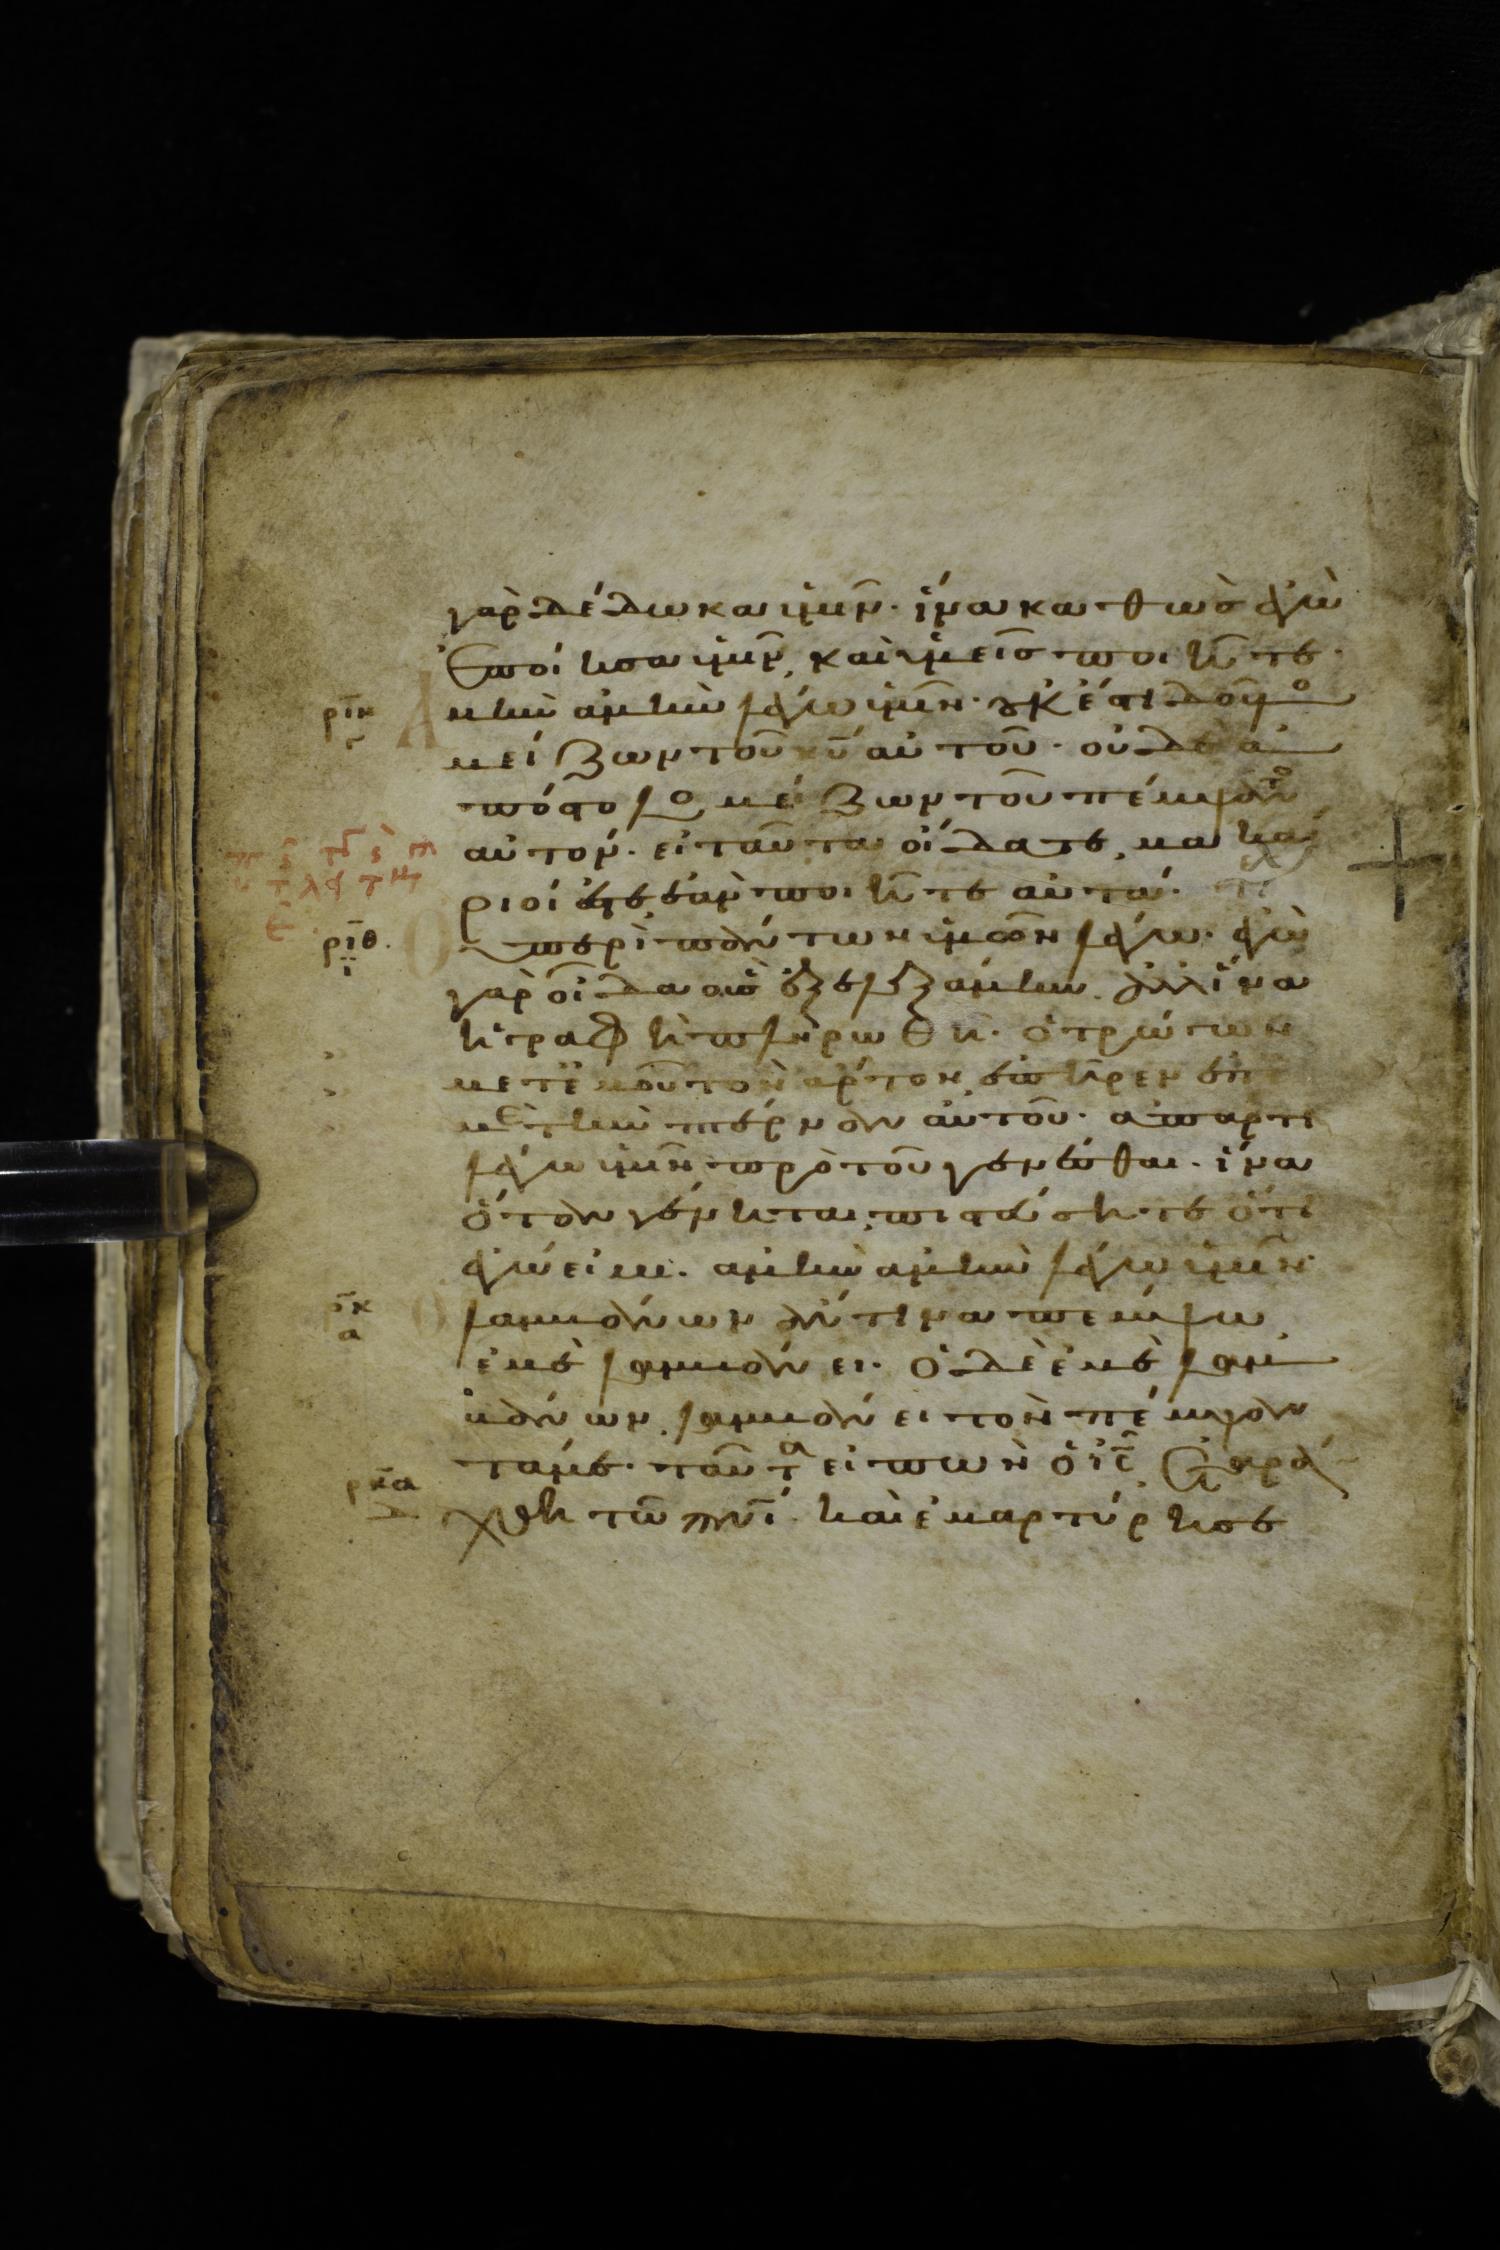 γὰρ δέδωκα ὑμῖν· ἵνα καθὼς ἐγὼ
ἐποίησα ὑμῖν, καὶ ὑμεῖς ποιῆτε·
ριη Ἀμὴν ἀμὴν λέγω ὑμῖν· οὐκ ἔστι δοῦλο
μείζων τοῦ κυ̅ αὐτοῦ· οὐδὲ ἀ
πόστολο μείζων τοῦ πέμψαντο
αὐτόν· εἰ ταῦτα οἴδατε, μακά
ριοί ἐστε ἐὰν ποιῆτε αὐτά·
ριθ Οὐ περὶ πάντων ὑμῶν λέγω· ἐγὼ
ι
γὰρ οἶδα οὓς ἐξελεξάμην. ἀλλ' ἵνα
ἡ γραφὴ πληρωθῆ· ὁ τρώγων
μετ' ἐμοῦ τὸν ἄρτον, ἐπῆρεν ἐπ
ἐμὲ τὴν πτέρναν αὐτοῦ· ἀπάρτι
λέγω ὑμῖν πρὸ τοῦ γενέσθαι· ἵνα
ὅταν γένηται, πιστεύσητε ὅτι
ἐγώ εἰμι· ἀμὴν ἀμὴν λέγω ὑμῖν·
ρκ Ὁ λαμβάνων ἄν τινα πέμψω,
α
ἐμὲ λαμβάνει· ὁ δὲ ἐμὲ λαμ
βάνων, λαμβάνει τὸν πέμψαν
τά με· ταῦτα εἰπὼν ὁ ις̅ ἐταρά
ρκα χθη τῶ πνι̅· καὶ ἐμαρτύρησε